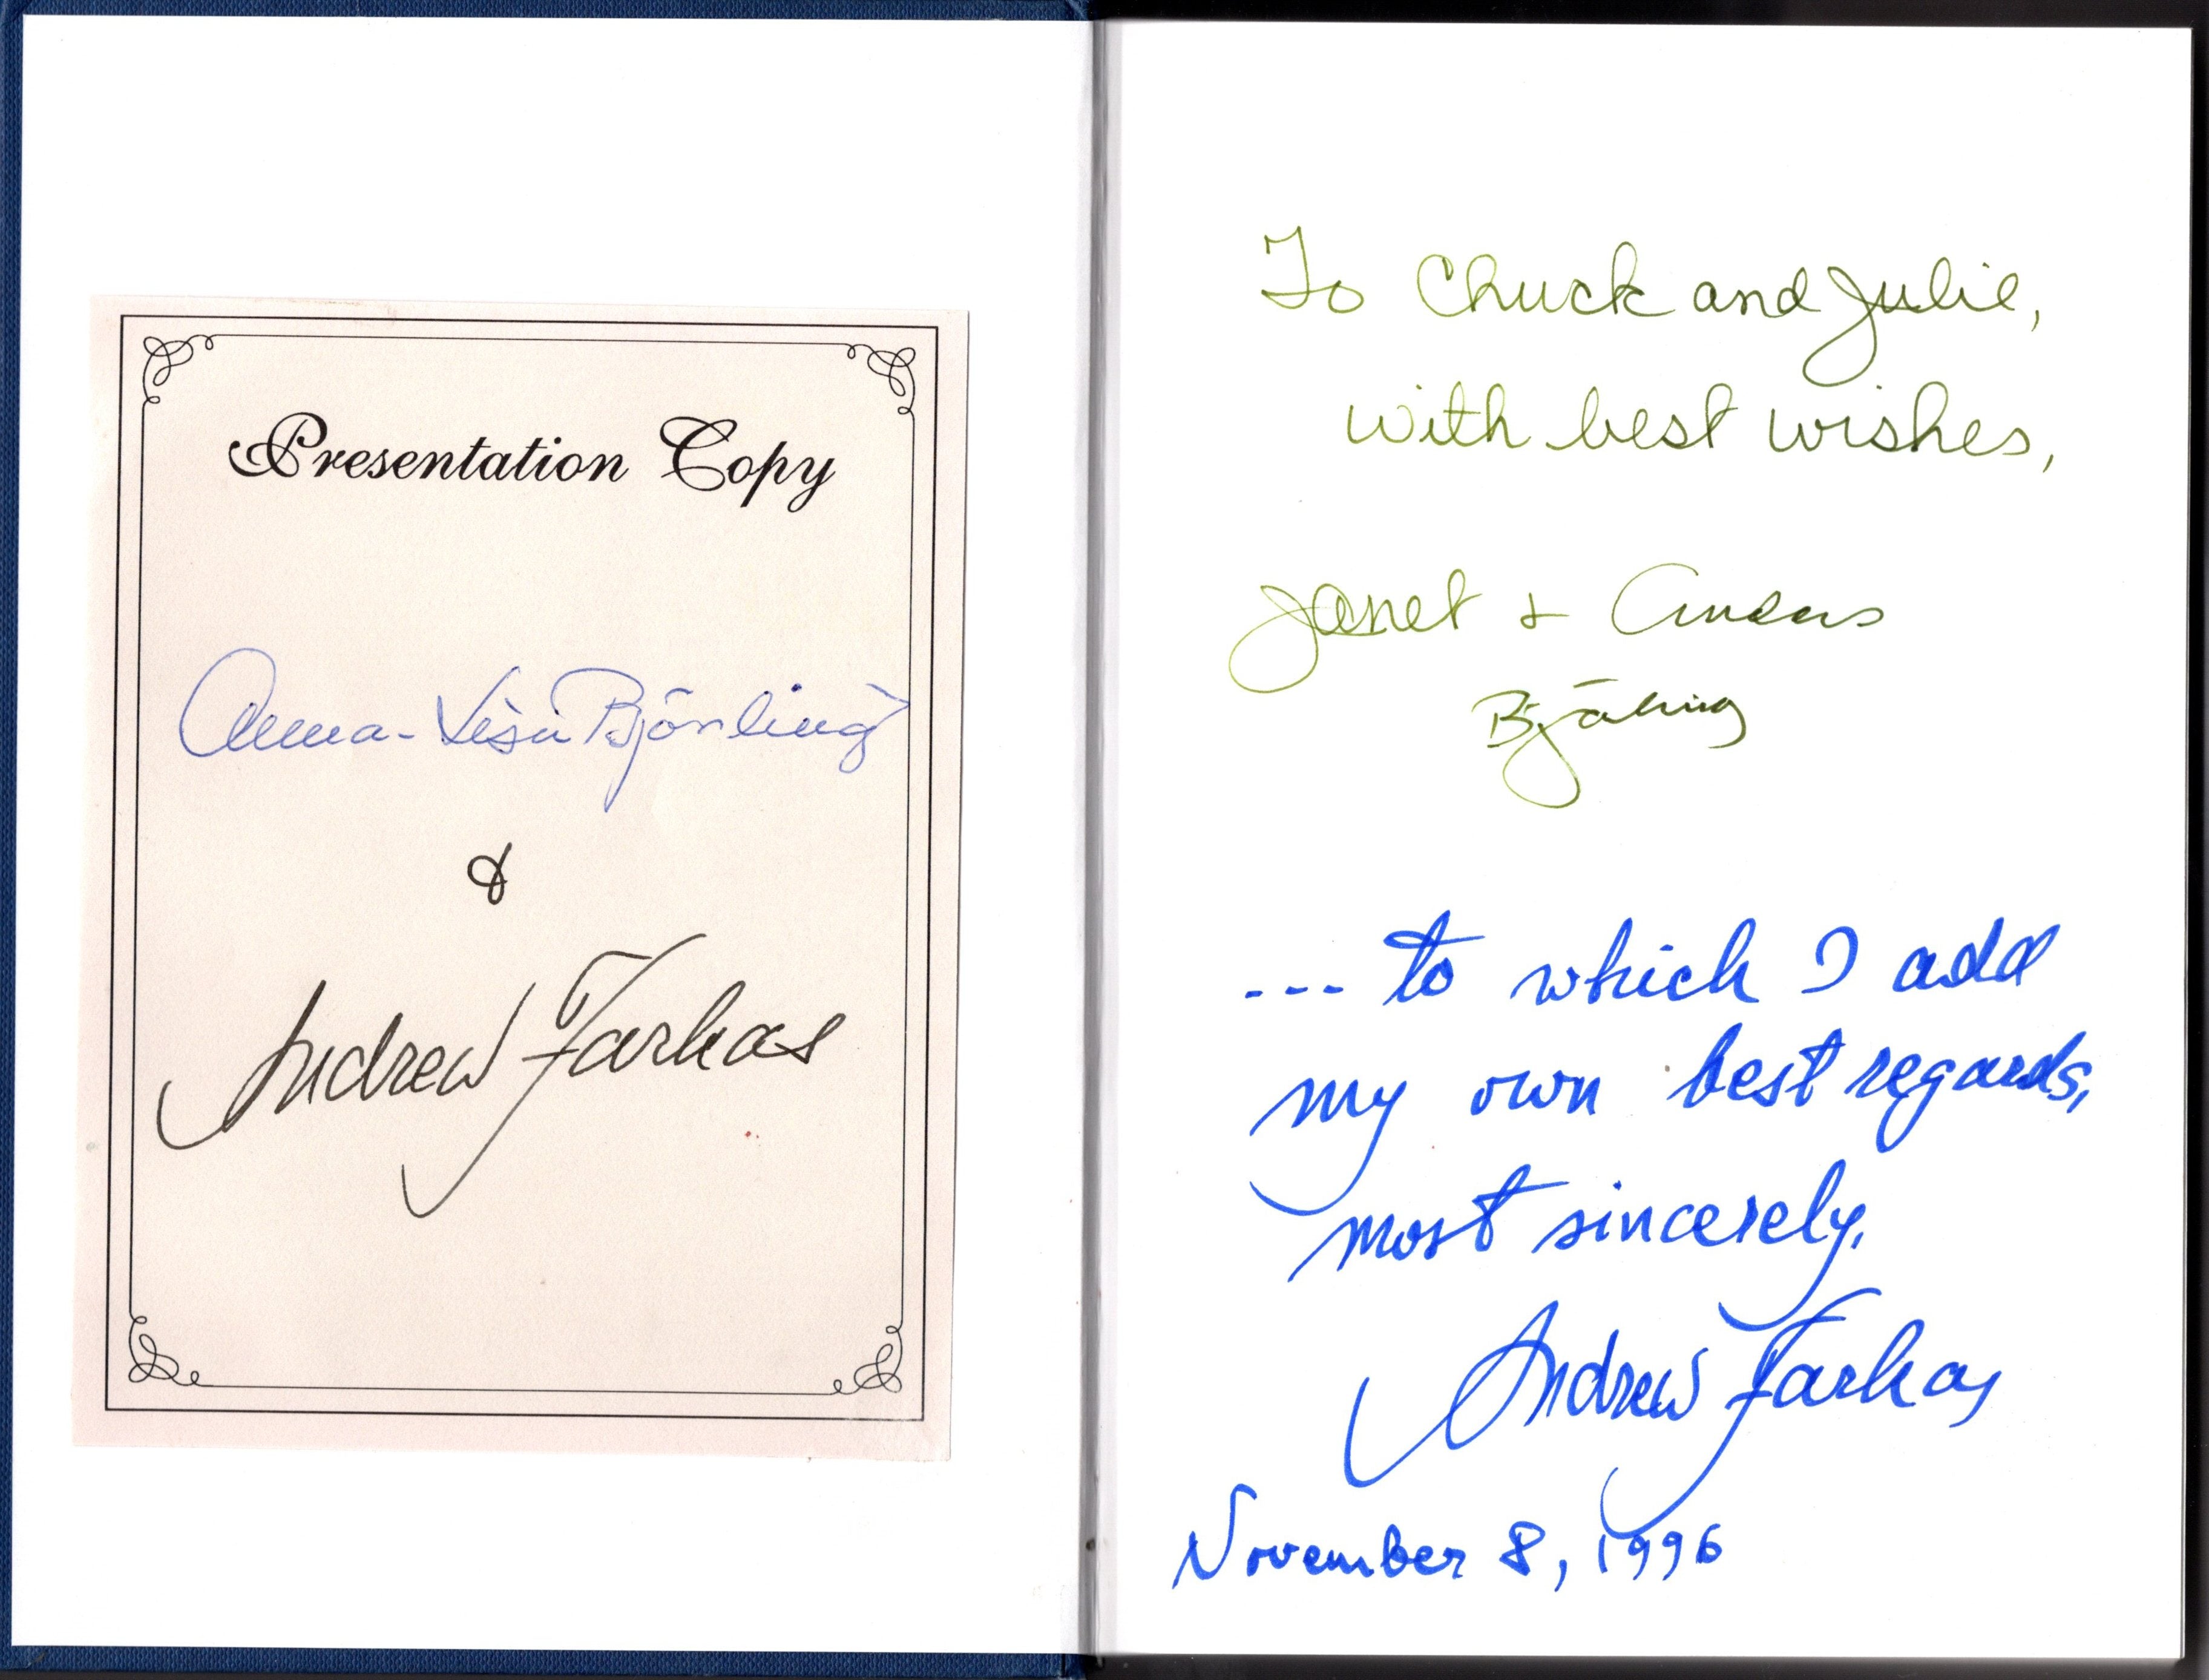 Presentation Copy
Anna-Lisa Björling
&
Andrew Farkas
To Chuck and Julie,
with best wishes,
Janet & Anders
Björling
... to which I add
my own best regards,
most sincerely,
Andrew Farkas
November 8, 1996